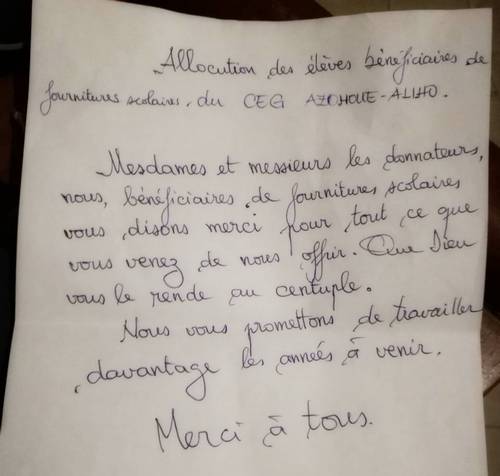 Allocution des élèves bénéficiaires de
fournitures scolaires du CEG AZOHOUE-ALIHO.
Mesdames et messieurs les donnateurs,
nous, bénéficiaires de fournitures scolaires
vous disons merci pour tout ce que
vous venez de nous offrir. Que Dieu
vous le rende au centuple.
Nous vous promettons de travailler
davantage les années à venir.
Merci à tous.